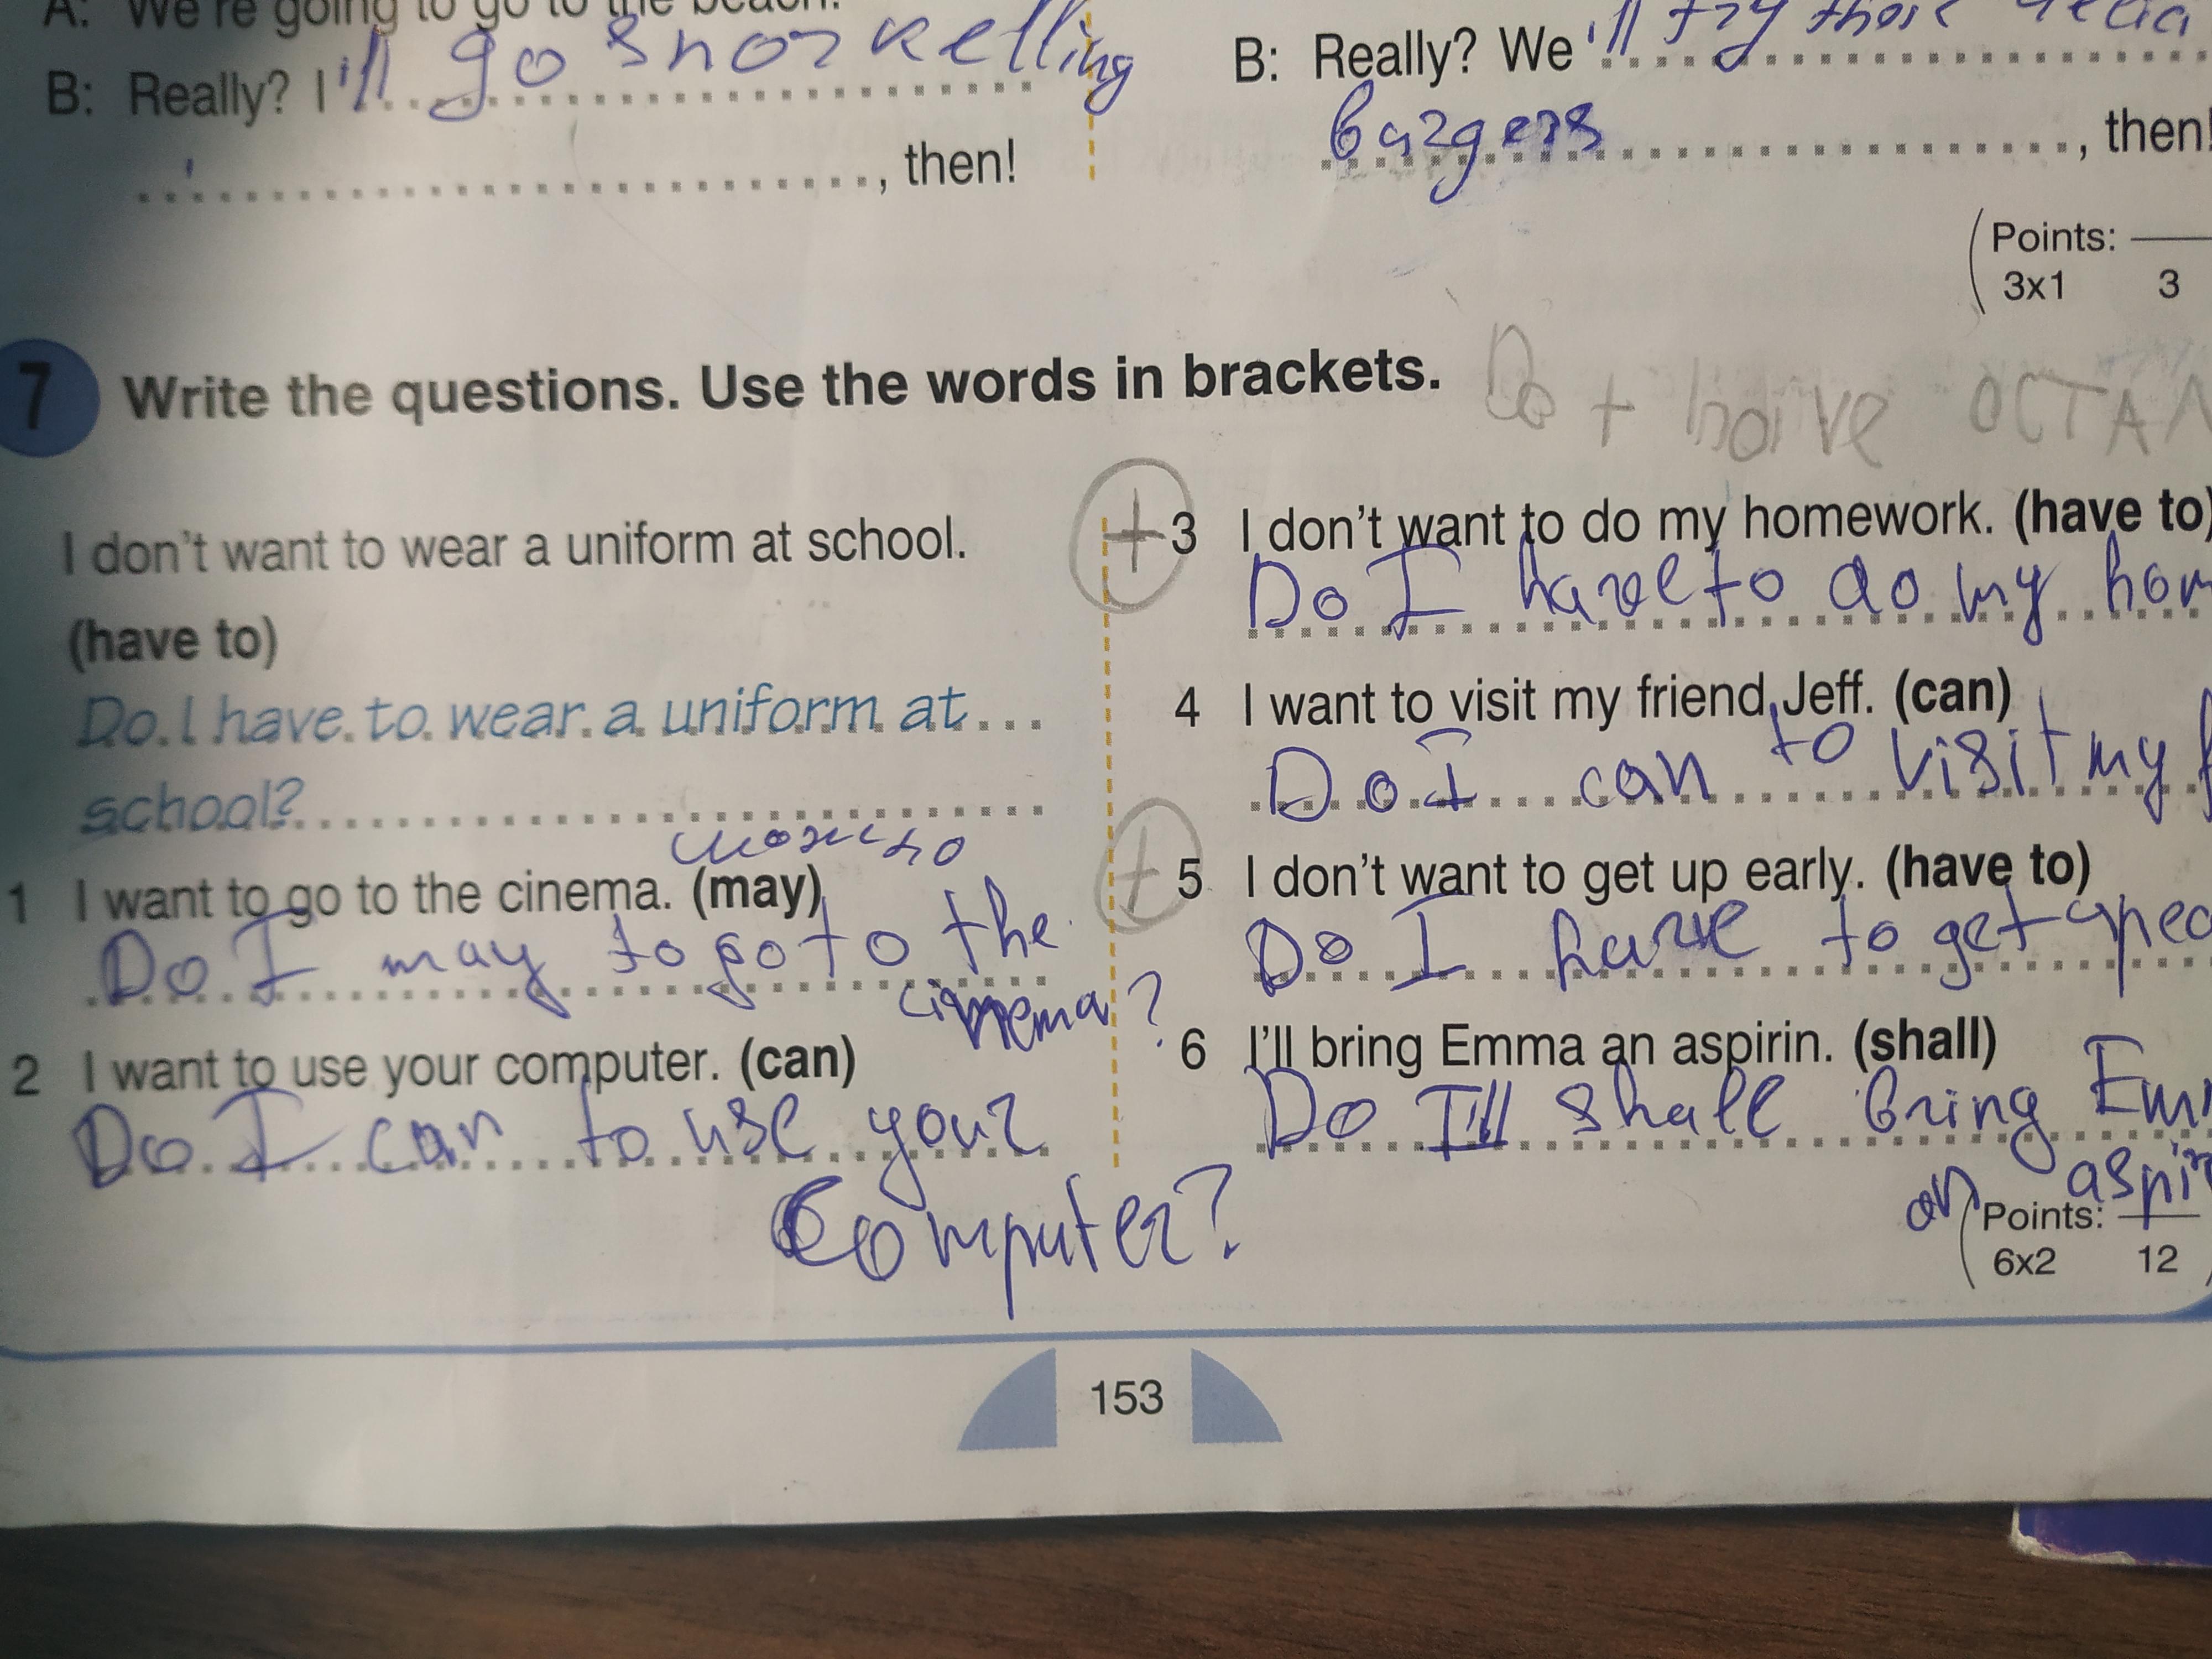 A: We're going to go to the beach.
B: Really? I'll go snorkelling
, then!
B: Really? We'll try those
burgers, then!
Points:
3x1 3
7 Write the questions. Use the words in brackets.
Do + have
I don't want to wear a uniform at school.
(have to)
Do I have to wear a uniform at
school?
можно
1 I want to go to the cinema. (may)
Do I may to go to the
cinema?
2 I want to use your computer. (can)
Do I can to use your
Computer?
+ 3 I don't want to do my homework. (have to)
Do I have to do my
4 I want to visit my friend, Jeff. (can)
Do I can to visit my
+ 5 I don't want to get up early. (have to)
Do I have to get up
6 I'll bring Emma an aspirin. (shall)
Do I'll shall bring
an
Points:
6x2 12
153